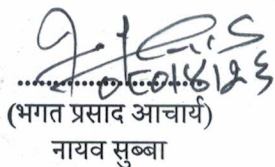 (भगत प्रसाद आचार्य)
नायव सुब्बा